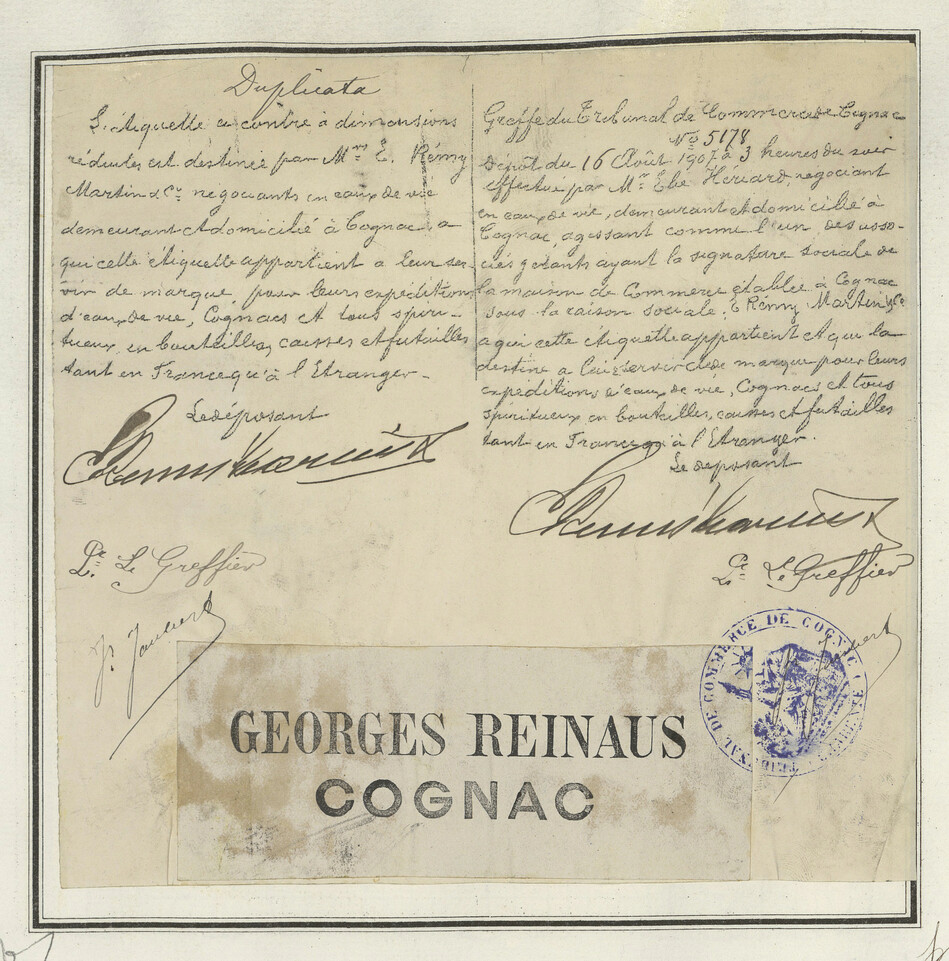 Duplicata
L'étiquette ci contre à dimensions
réduites est destinée par Mrs E. Rémy
Martin & Cie négociants en eaux de vie
demeurant et domicilié à Cognac, a
qui cette étiquette appartient a leur ser-
vir de marque pour leurs expéditions
d'eaux de vie, Cognacs et tous spiri-
tueux, en bouteilles, caisses et futailles
tant en France qu'à l'Etranger.
Le déposant
Pr. Le Greffier
Greffe du Tribunal de Commerce de Cognac
No 5178
Dépôt du 16 Août 1907 à 3 heures du soir
effectué par Mr Elie Hériard, négociant
en eaux de vie, demeurant et domicilié à
Cognac, agissant comme l'un des asso-
ciés gérants ayant la signature sociale de
la maison de Commerce établie à Cognac
sous la raison sociale, E Rémy Martin & Co
a qui cette étiquette appartient et qui la
destine a lui servir de marque pour leurs
expéditions d'eaux de vie, Cognacs et tous
spiritueux en bouteilles, caisses et futailles
tant en France qu'à l'Etranger.
Le déposant
Pr. Le Greffier
TRIBUNAL DE COMMERCE DE COGNAC (CHARENTE)
GEORGES REINAUS
COGNAC